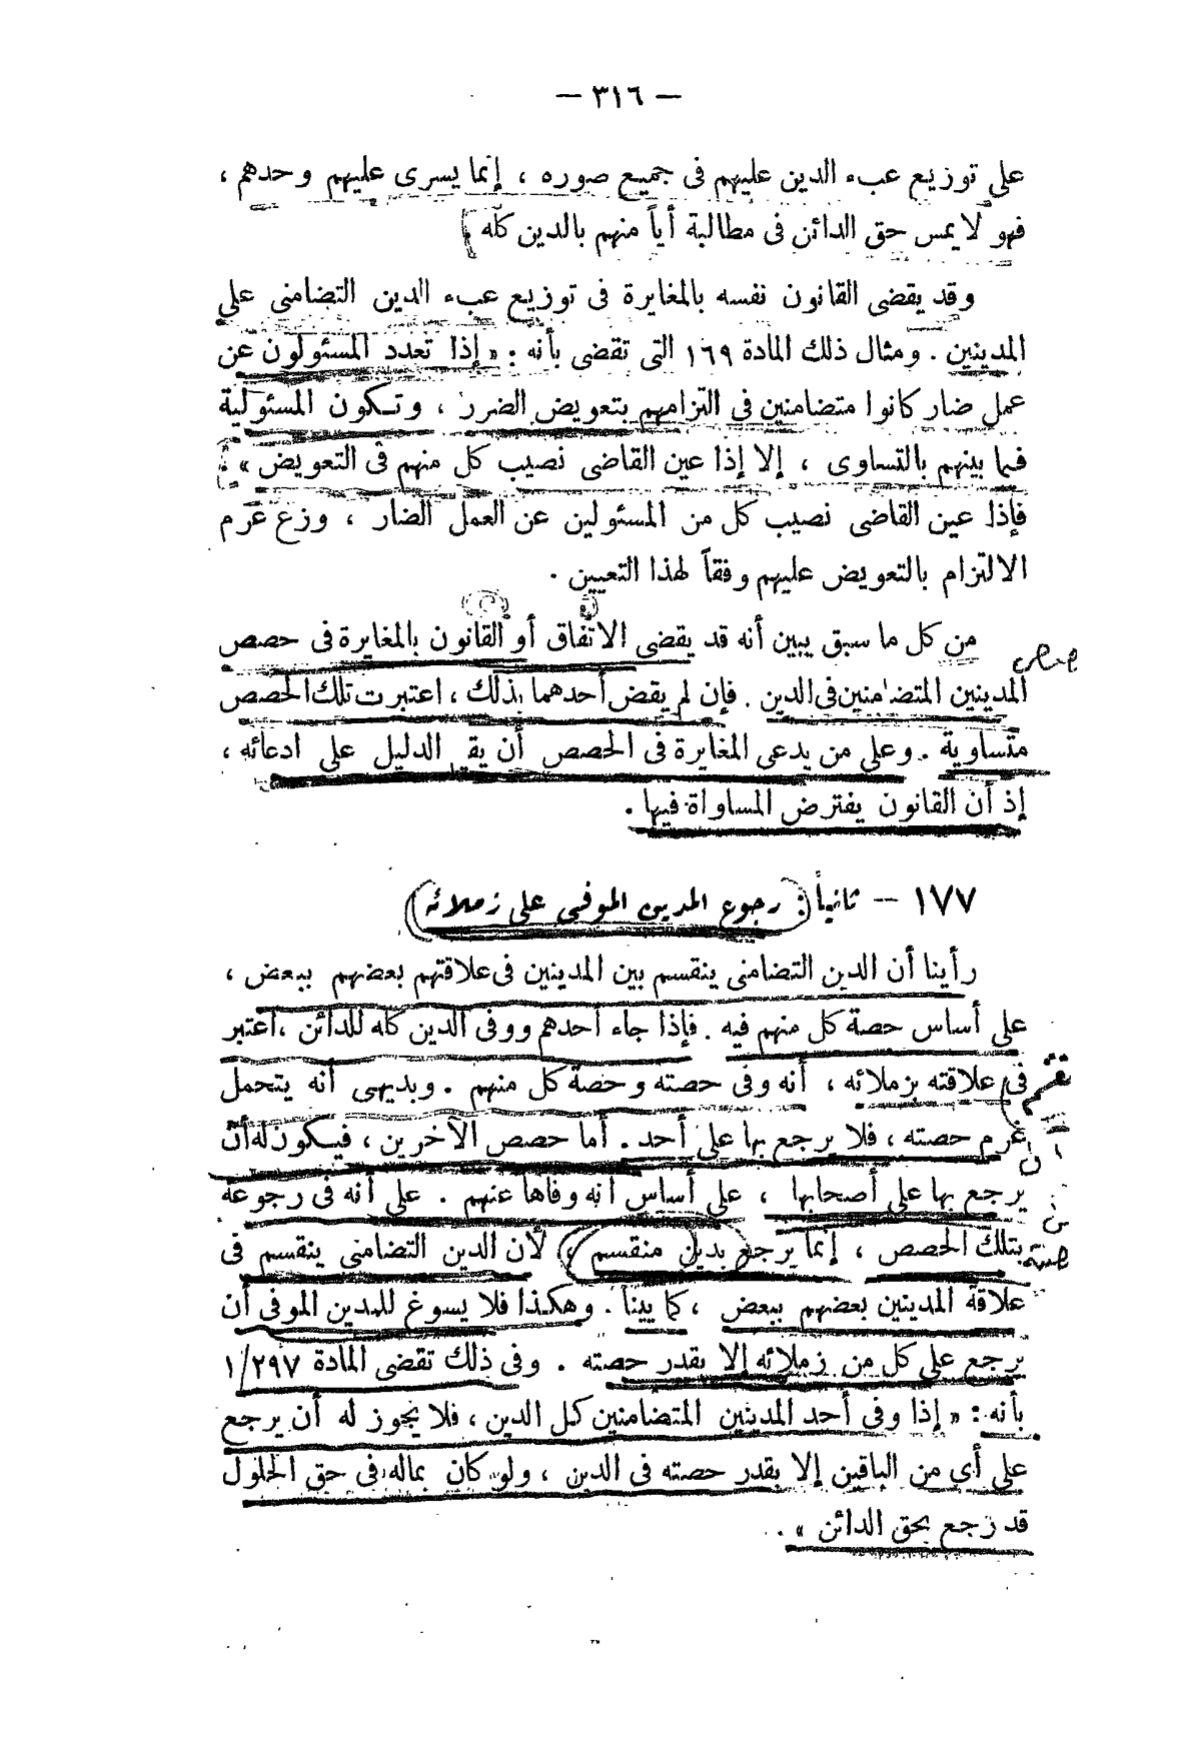 — ٣١٦ —
على توزيع عبء الدين عليهم فى جميع صوره ، إنما يسرى عليهم وحدهم ،
فهو لا يمس حق الدائن فى مطالبة أياً منهم بالدين كله .
وقد يقضى القانون نفسه بالمغايرة فى توزيع عبء الدين التضامنى على
المدينين . ومثال ذلك المادة ١٦٩ التى تقضى بأنه : « إذا تعدد المسئولون عن
عمل ضار كانوا متضامنين فى التزامهم بتعويض الضرر ، وتكون المسئولية
فيما بينهم بالتساوى ، إلا إذا عين القاضى نصيب كل منهم فى التعويض » :
فإذا عين القاضى نصيب كل من المسئولين عن العمل الضار ، وزع غرم
الالتزام بالتعويض عليهم وفقاً لهذا التعيين .
من كل ما سبق يبين أنه قد يقضى الاتفاق أو القانون بالمغايرة فى حصص
المدينين المتضامنين فى الدين . فإن لم يقض أحدهما بذلك ، اعتبرت تلك الحصص
متساوية . وعلى من يدعى المغايرة فى الحصص أن يقـ الدليل على ادعائه ،
إذ أن القانون يفترض المساواة فيها .
١٧٧ — ثانياً : رجوع المدين الموفى على زملائه
رأينا أن الدين التضامنى ينقسم بين المدينين فى علاقتهم بعضهم ببعض ،
على أساس حصة كل منهم فيه . فإذا جاء أحدهم ووفى الدين كله للدائن ، اعتبر
فى علاقته بزملائه ، أنه وفى حصته وحصة كل منهم . وبديهى أنه يتحمل
غرم حصته ، فلا يرجع بها على أحد . أما حصص الآخرين ، فيكون له أن
يرجع بها على أصحابها ، على أساس أنه وفاها عنهم . على أنه فى رجوعه
بتلك الحصص ، إنما يرجع بدين منقسم ، لأن الدين التضامنى ينقسم فى
علاقة المدينين بعضهم ببعض ، كما بينا . وهكذا فلا يسوغ للمدين الموفى أن
يرجع على كل من زملائه إلا بقدر حصته . وفى ذلك تقضى المادة ١/٢٩٧
بأنه : « إذا وفى أحد المدينين المتضامنين كل الدين ، فلا يجوز له أن يرجع
على أى من الباقين إلا بقدر حصته فى الدين ، ولو كان بماله فى حق الحلول
قد رجع بحق الدائن » .